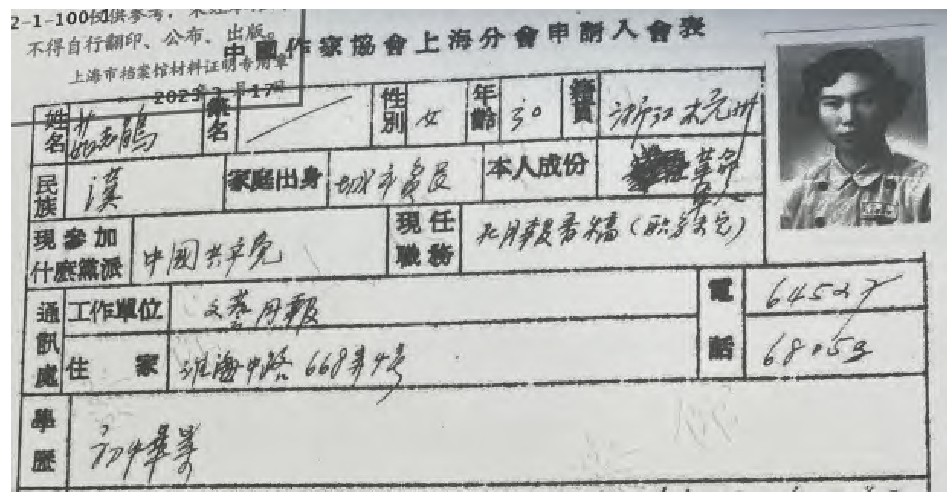 2-1-100仅供参考，未经本馆
不得自行翻印、公布、出版。
上海市档案馆材料证明专用章
2023年 月17日
中國作家協會上海分會申請入會表
姓名 茹志鵑 筆名 性別 女 年齡 30 籍貫 浙江 杭州
民族 漢 家庭出身 城市貧民 本人成份 革命軍人
現參加什麽黨派 中國共产党 現任職務 在月報看稿（职务未定）
通訊處 工作單位 文藝月報 電話 64527
住家 淮海中路668弄4号 68053
學歷 初中畢業